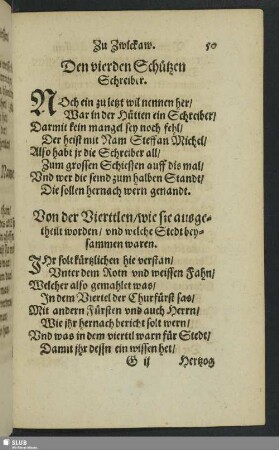 Zu Zwickaw. 50
Den vierden Schützen
Schreiber.
NOch ein zu letzt wil nennen her/
War in der Hütten ein Schreiber/
Darmit kein mangel sey noch fehl/
Der heist mit Nam Steffan Michel/
Also habt jr die Schreiber all/
Zum grossen Schiessen auff dis mal/
Vnd wer die seind zum halben Standt/
Die sollen hernach wern genandt.
Von der Viertlen/wie sie ausge-
theilt worden/ vnd welche Stedt bey-
sammen waren.
IHr solt kürtzlichen hie verstan/
Vnter dem Rotn vnd weissen Fahn/
Welcher also gemahlet was/
In dem Viertel der Churfürst sas/
Mit andern Fürsten vnd auch Herrn/
Wie jhr hernach bericht solt wern/
Vnd was in dem viertl warn für Stedt/
Damit jhr dessn ein wissen het/
G ij Hertzog
SLUB